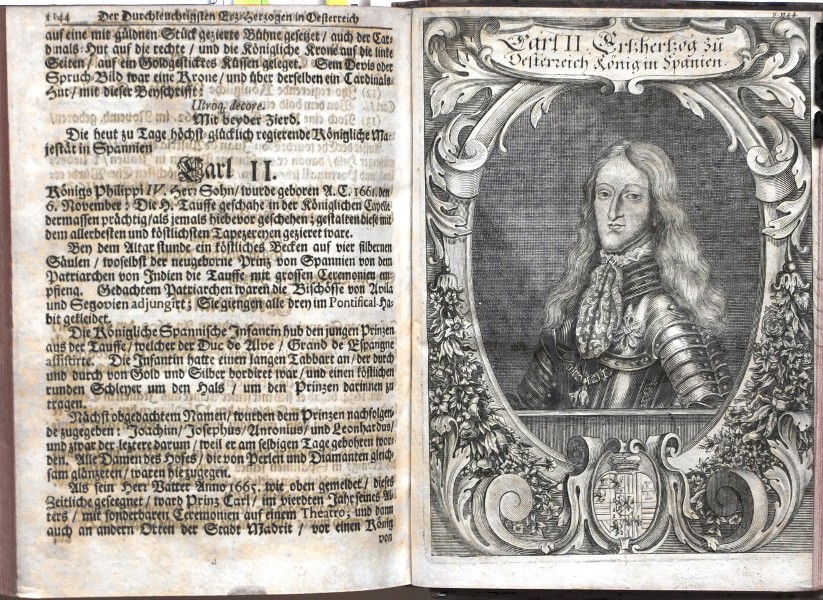 1144 Der Durchleuchtigsten Ertz-Hertzogen in Oesterreich
auf eine mit güldnen Stück gezierte Bühne gesetzet / auch der Car-
dinals-Hut auf die rechte / und die Königliche Krone auf die linke
Seiten / auf ein Goldgesticktes Küssen geleget. Sein Devis oder
Spruch-Bild war eine Krone / und über derselben ein Cardinals-
Hut / mit dieser Beyschrifft:
Utroq. decore.
Mit beyder Zierd.
Die heut zu Tage höchst glücklich regierende Königliche Ma-
jestät in Spannien
Carl II.
Königs Philippi IV. Herr Sohn / wurde geboren A. C. 1661. den
6. November: Die H. Tauffe geschahe in der Königlichen Capelle
dermassen prächtig / als jemals hiebevor geschehen; gestalten diese mit
dem allerbesten und köstlichsten Tapezereyen gezieret ware.
Bey dem Altar stunde ein köstliches Becken auf vier silbernen
Säulen / woselbst der neugeborne Prinz von Spannien von dem
Patriarchen von Indien die Tauffe mit grossen Ceremonien em-
pfieng. Gedachtem Patriarchen waren die Bischöffe von Avila
und Segovien adjungirt; Sie giengen alle drey im Pontifical-Ha-
bit gekleidet.
Die Königliche Spannische Infantin hub den jungen Prinzen
aus der Tauffe / welcher der Duc de Alve / Grand de Espangne
assistirte. Die Infantin hatte einen langen Tabbart an / der durch
und durch von Gold und Silber bordiret war / und einen köstlichen
runden Schleyer um den Hals / um den Prinzen darinnen zu
tragen.
Nächst obgedachtem Namen / wurden dem Prinzen nachfolgen-
de zugegeben: Joachin / Josephus / Antonius / und Leonhardus /
und zwar der leztere darum / weil er am selbigen Tage gebohren wor-
den. Alle Damen des Hofes / die von Perlen und Diamanten gleich-
sam glänzeten / waren hiezugegen.
Als sein Herr Vatter Anno 1665. wie oben gemeldet / dieses
Zeitliche geseegnet / ward Prinz Carl / im vierdten Jahr seines Al-
ters / mit sonderbaren Ceremonien auf einem Theatro, und dann
auch an andern Orten der Stadt Madrit / vor einen König
von
Carl II. Ertzhertzog zu
Oesterreich König in Spanien.